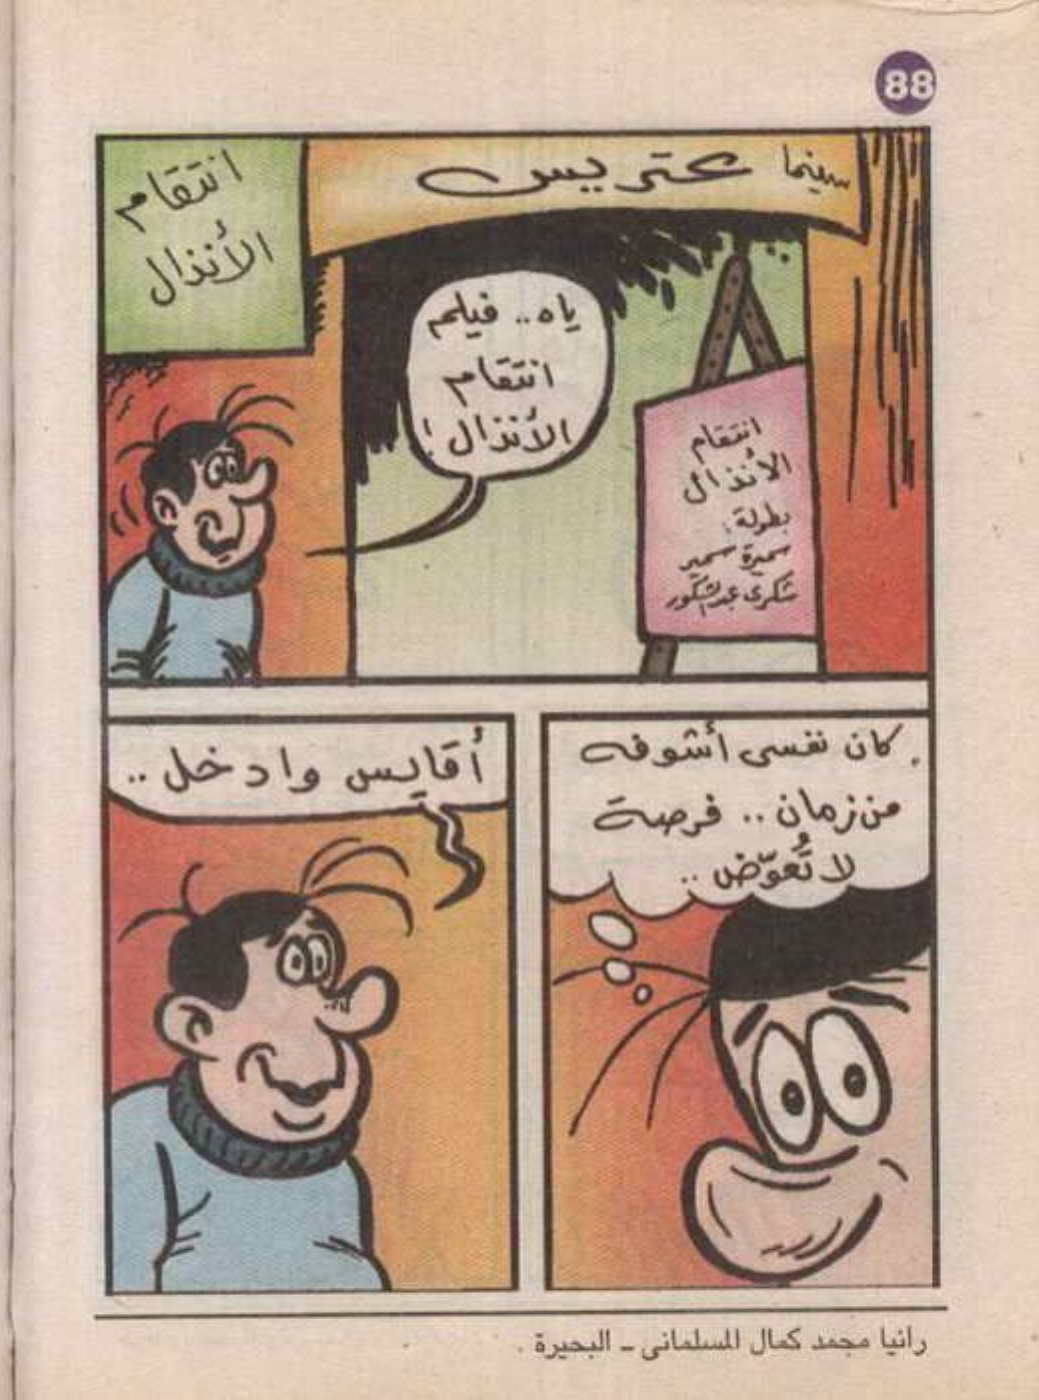 88
سينما عتريس
انتقام
الأنذال
ياه.. فيلم
انتقام
الأنذال!
انتقام
الأنذال
بطولة:
سميرة سمير
شكرى عبدالشكور
كان نفسى أشوفه
من زمان.. فرصة
لا تُعوّض..
أقايس وادخل..
رانيا محمد كمال المسلمانى - البحيرة .